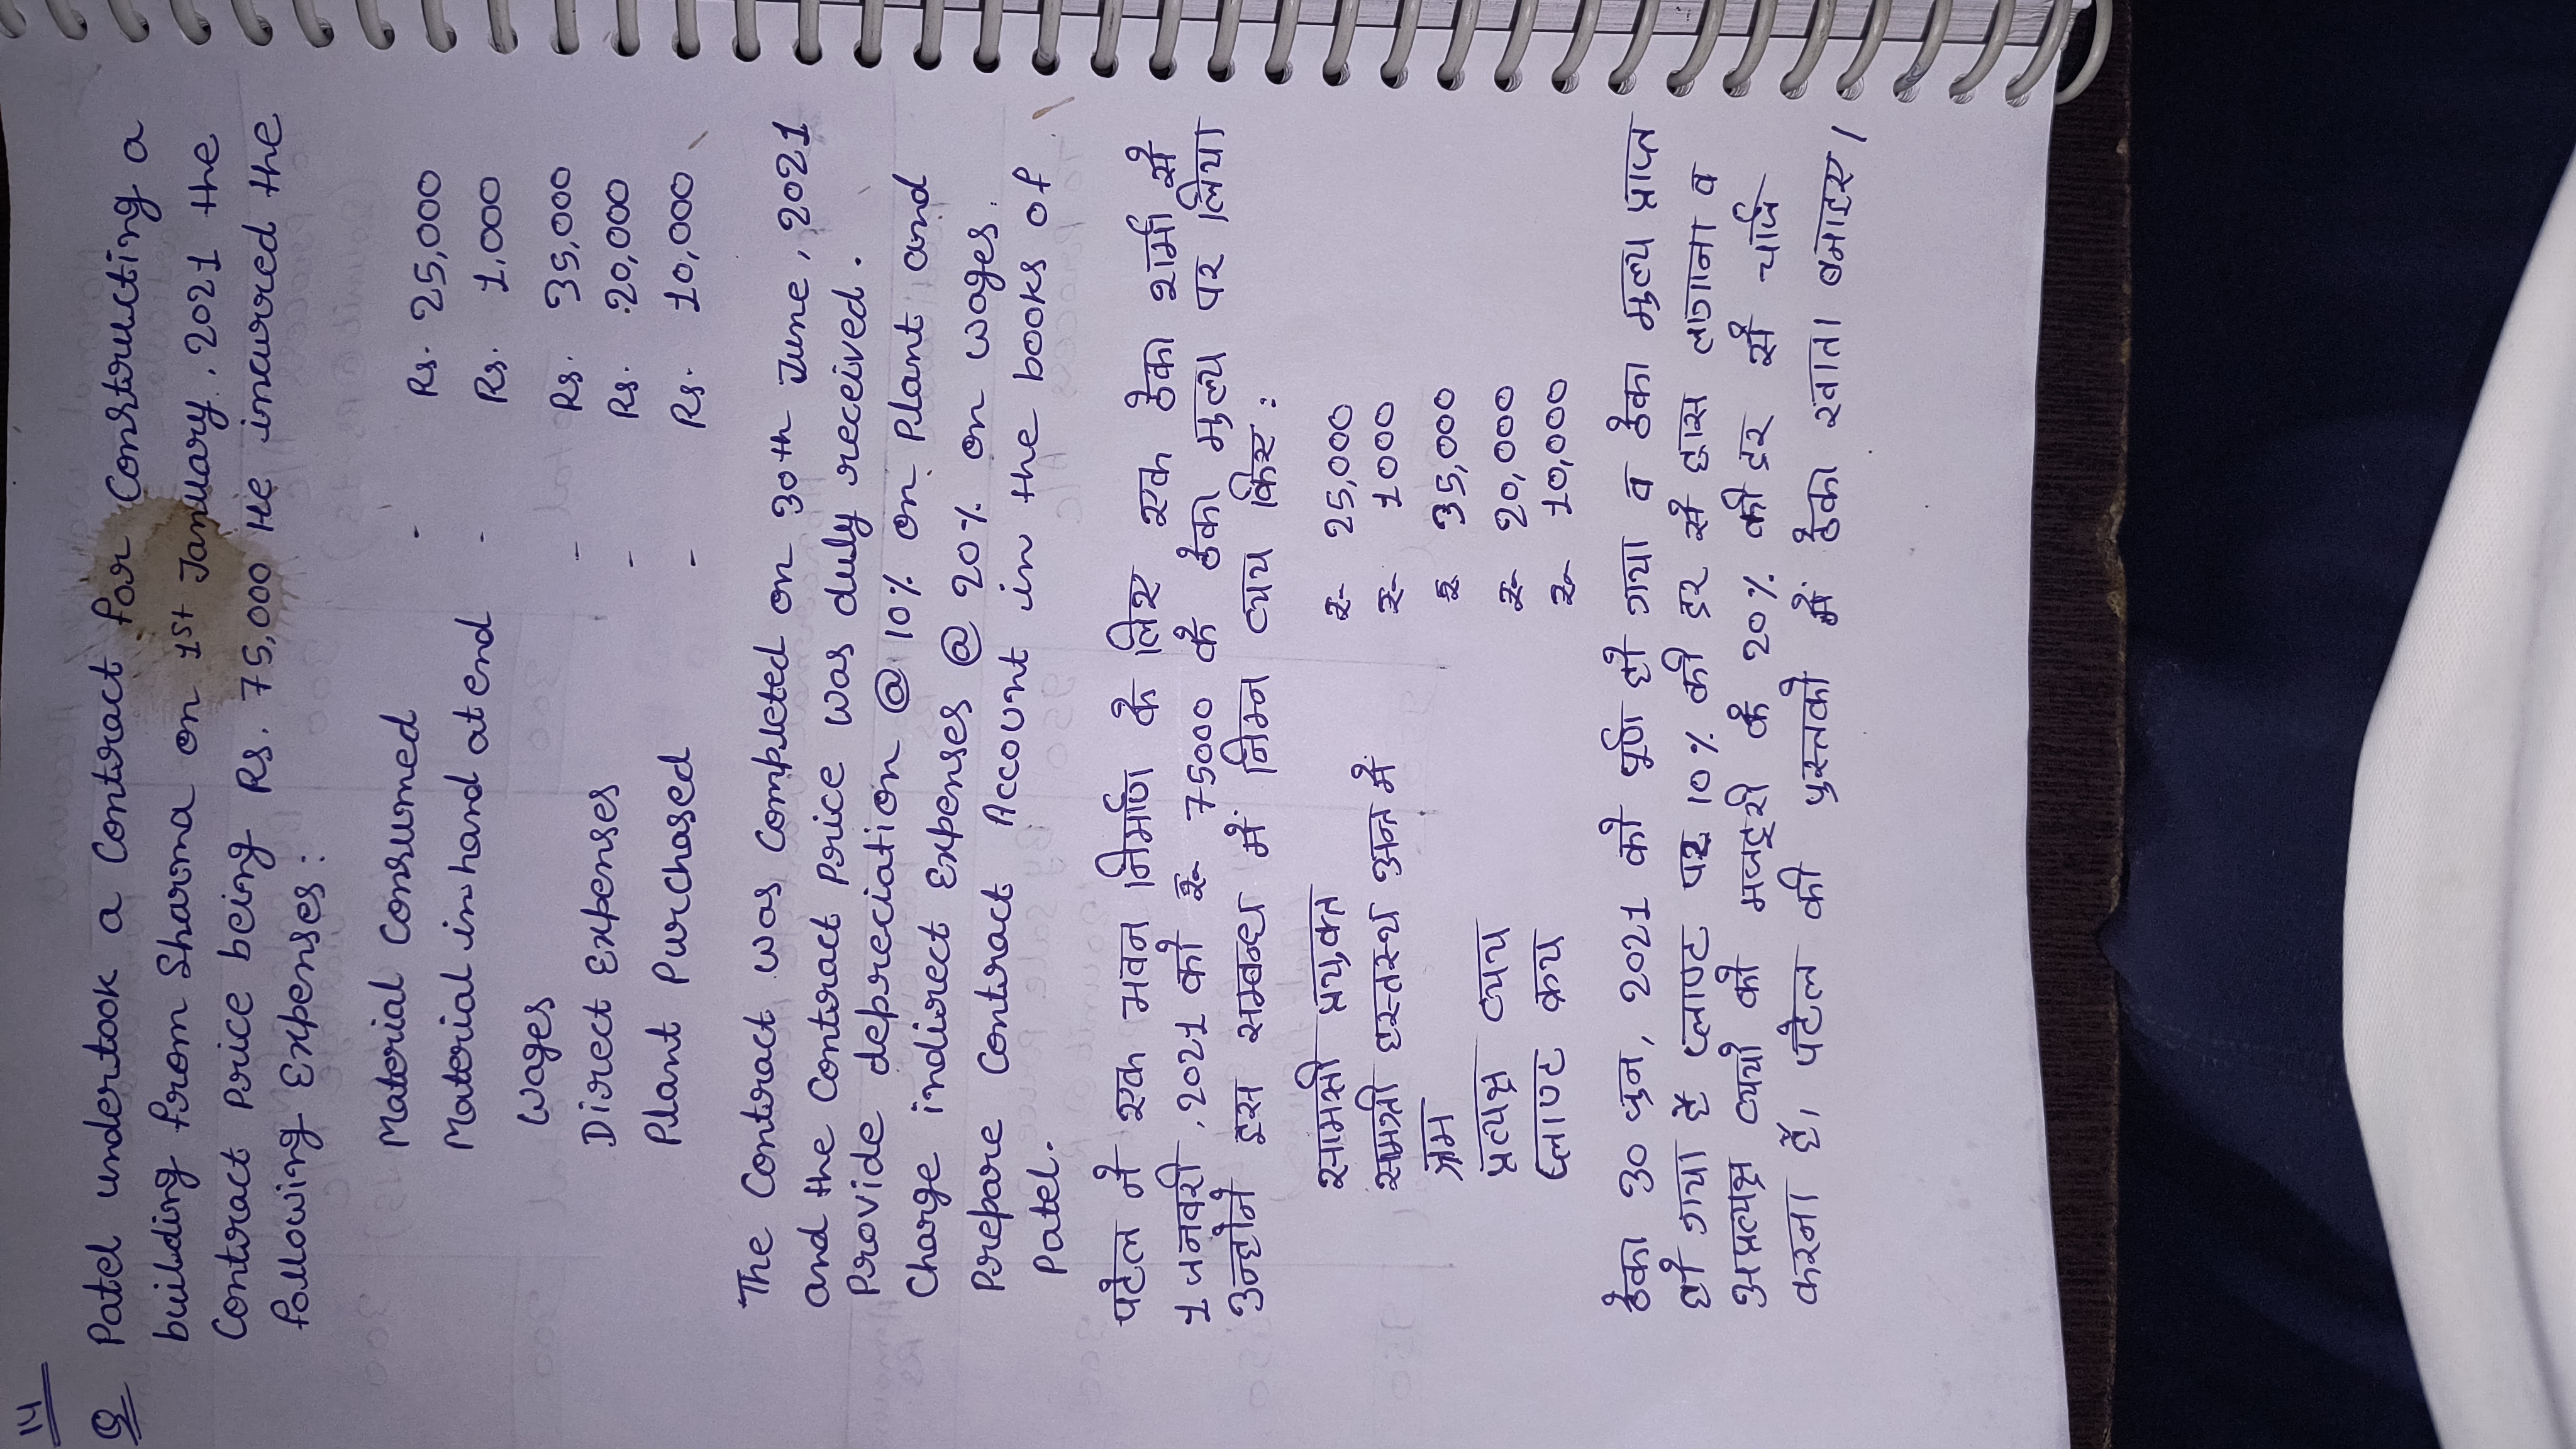 14
Q Patel undertook a Contract for Constructing a
building from Sharma on 1st January, 2021 the
Contract Price being Rs. 75,000 He incurred the
following Expenses:
Material Consumed - Rs. 25,000
Material in hand at end - Rs. 1,000
Wages - Rs. 35,000
Direct Expenses - Rs. 20,000
Plant Purchased - Rs. 10,000
The Contract was completed on 30th June, 2021
and the Contract Price was duly received.
Provide depreciation @ 10% on Plant and
Charge indirect Expenses @ 20% on wages.
Prepare Contract Account in the books of
Patel.
पटेल ने एक भवन निर्माण के लिए एक ठेका शर्मा से
1 जनवरी, 2021 को ₹ 75000 के ठेका मुल्य पर लिया
उन्होने इस सम्बन्ध में निम्न व्यय किए:
सामग्री प्रयुक्त ₹ 25,000
सामग्री हस्तस्थ अन्त में ₹ 1000
श्रम ₹ 35,000
प्रत्यक्ष व्यय ₹ 20,000
प्लाण्ट क्रय ₹ 10,000
ठेका 30 जुन, 2021 को पूर्ण हो गया व ठेका मुल्य प्राप्त
हो गया है प्लाण्ट पर 10% की दर से ह्रास लगाना व
अप्रत्यक्ष व्ययो को मजदूरी के 20% की दर से चार्ज
करना है। पटेल की पुस्तको में ठेका खाता बनाइए।